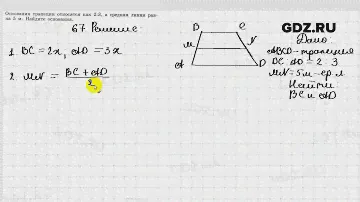 Основания трапеции относятся как 2:3, а средняя линия рав-
на 5 м. Найдите основания.
GDZ.RU
67 Решение
1. BC = 2x, AD = 3x
2. MN = BC + AD
2
B C
M N
A D
Дано
ABCD - трапеция
BC : AD = 2 : 3
MN = 5м - ср. л
Найти
BC и AD